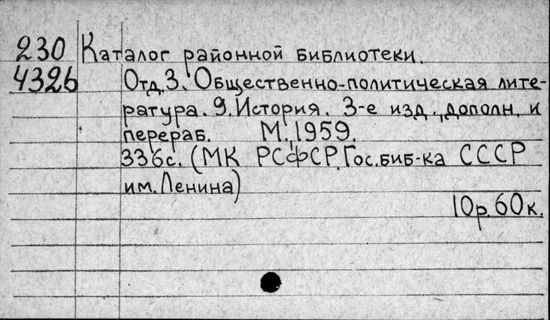 230 Каталог районной библиотеки.
432б Отд.3. Общественно-политическая лите-
ратура. 9. История. 3-е изд., дополн. и
перераб. М., 1959.
336с. (МК РСФСР. Гос.биб-ка СССР
им. Ленина)
10р. 60к.